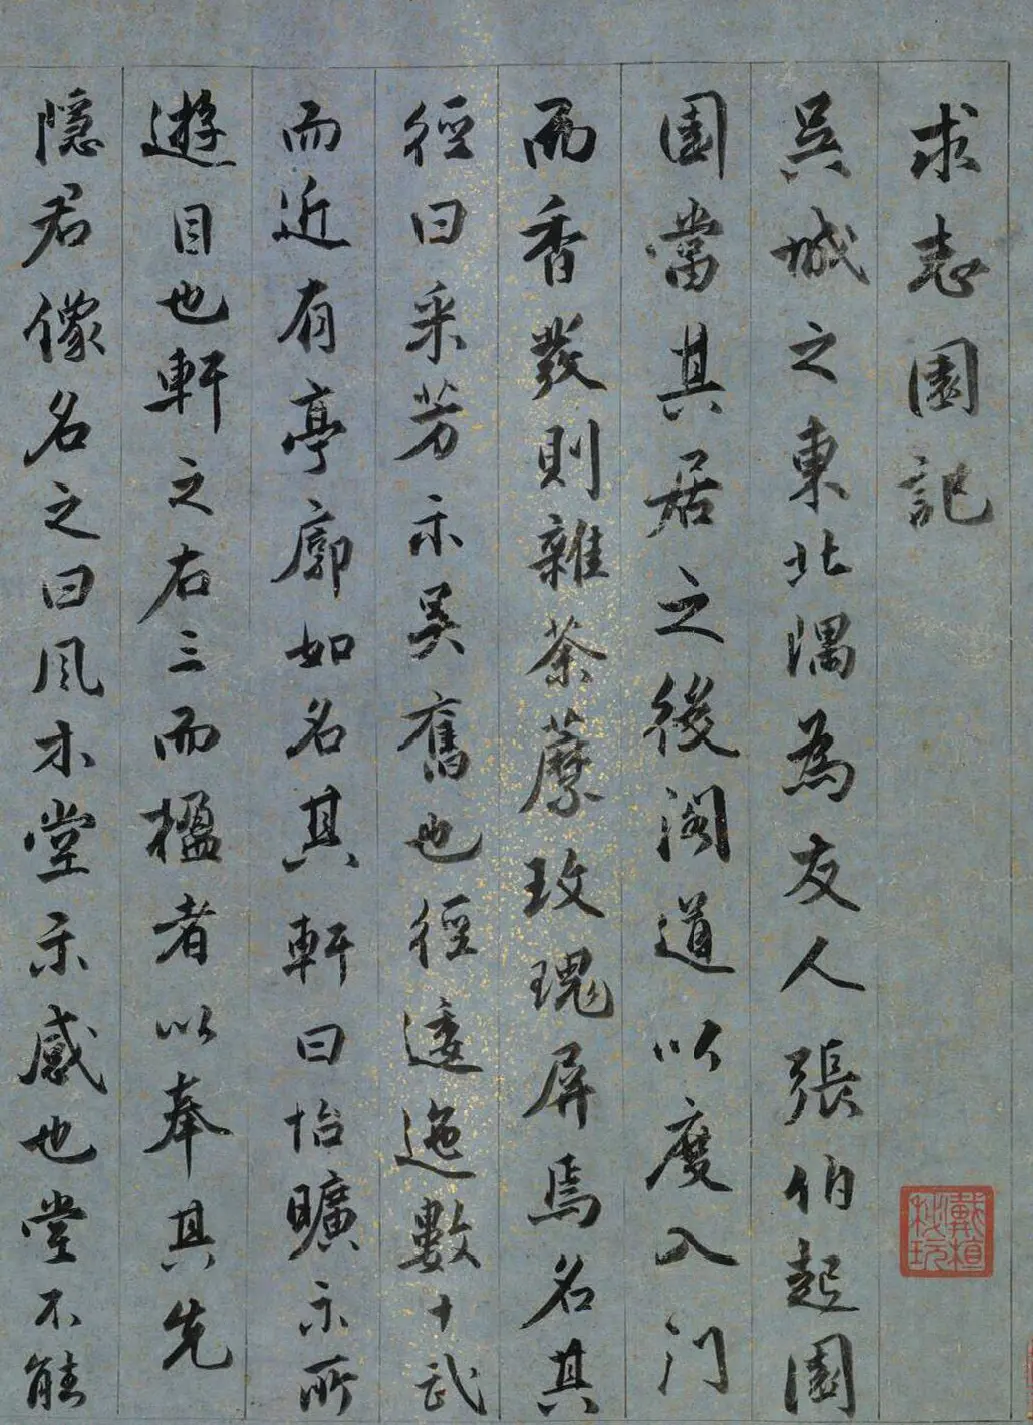 求志園記
吳城之東北隅為友人張伯起園
園當其居之後閣道以度入門
而香發則雜荼䕷玫瑰屏焉名其
徑曰采芳示吳舊也徑逶迤數十武
而近有亭廓如名其軒曰怡曠示所
遊目也軒之右三而楹者以奉其先
隱君像名之曰風木堂示感也堂不能